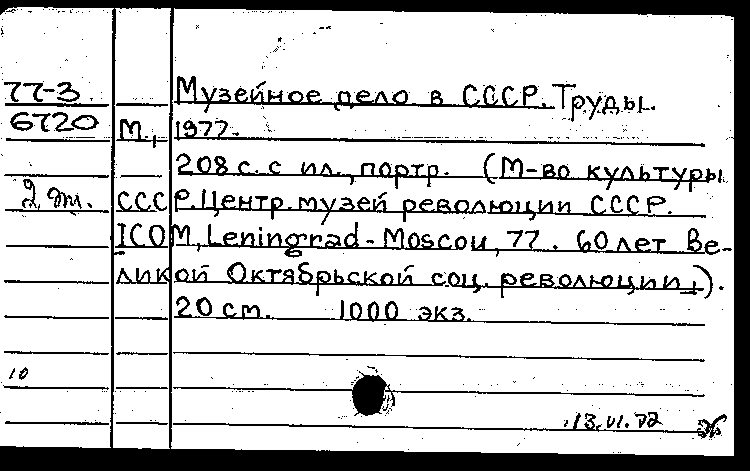 77-3 Музейное дело в СССР. Труды.
6720 М., 1977.
208 с. с ил., портр. (М-во культуры
2 эт. СССР. Центр. музей революции СССР.
ICOM, Leningrad-Moscou, 77. 60 лет Ве-
ликой Октябрьской соц. революции).
20 см. 1000 экз.
10
13.VI.